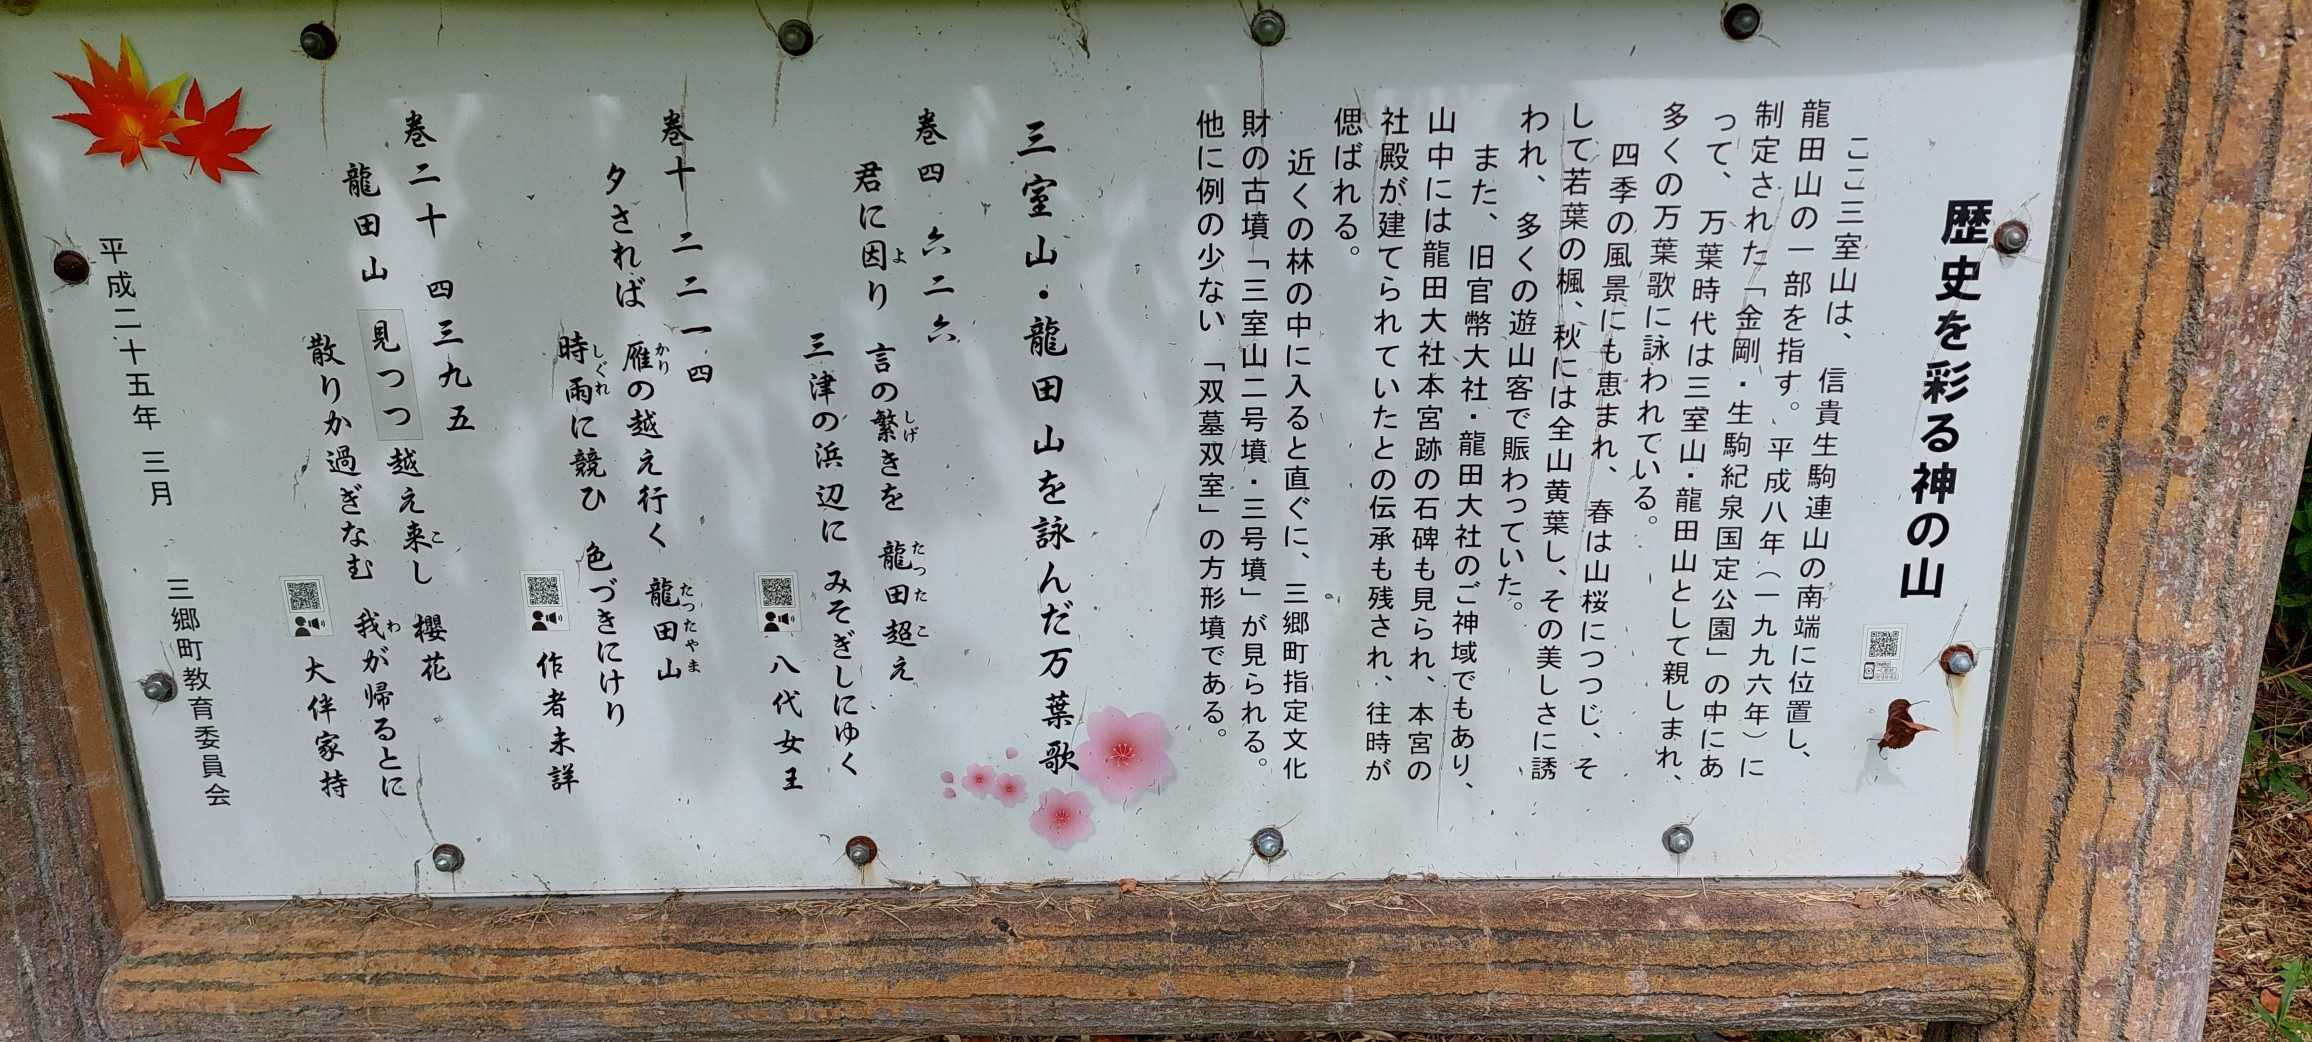 歴史を彩る神の山
ここ三室山は、信貴生駒連山の南端に位置し、
龍田山の一部を指す。平成八年（一九九六年）に
制定された「金剛・生駒紀泉国定公園」の中にあ
って、万葉時代は三室山・龍田山として親しまれ、
多くの万葉歌に詠われている。
四季の風景にも恵まれ、春は山桜につつじ、そ
して若葉の楓、秋には全山黄葉し、その美しさに誘
われ、多くの遊山客で賑わっていた。
また、旧官幣大社・龍田大社のご神域でもあり、
山中には龍田大社本宮跡の石碑も見られ、本宮の
社殿が建てられていたとの伝承も残され、往時が
偲ばれる。
近くの林の中に入ると直ぐに、三郷町指定文化
財の古墳「三室山二号墳・三号墳」が見られる。
他に例の少ない「双墓双室」の方形墳である。
三室山・龍田山を詠んだ万葉歌
巻四 六二六
君に因り 言の繁きを 龍田超え
よ しげ たつた こ
三津の浜辺に みそぎしにゆく
八代女王
巻十 二二一四
夕されば 雁の越え行く 龍田山
かり たつたやま
時雨に競ひ 色づきにけり
しぐれ
作者未詳
巻二十 四三九五
龍田山 見つつ越え来し 櫻花
こ
散りか過ぎなむ 我が帰るとに
わ
大伴家持
平成二十五年 三月 三郷町教育委員会